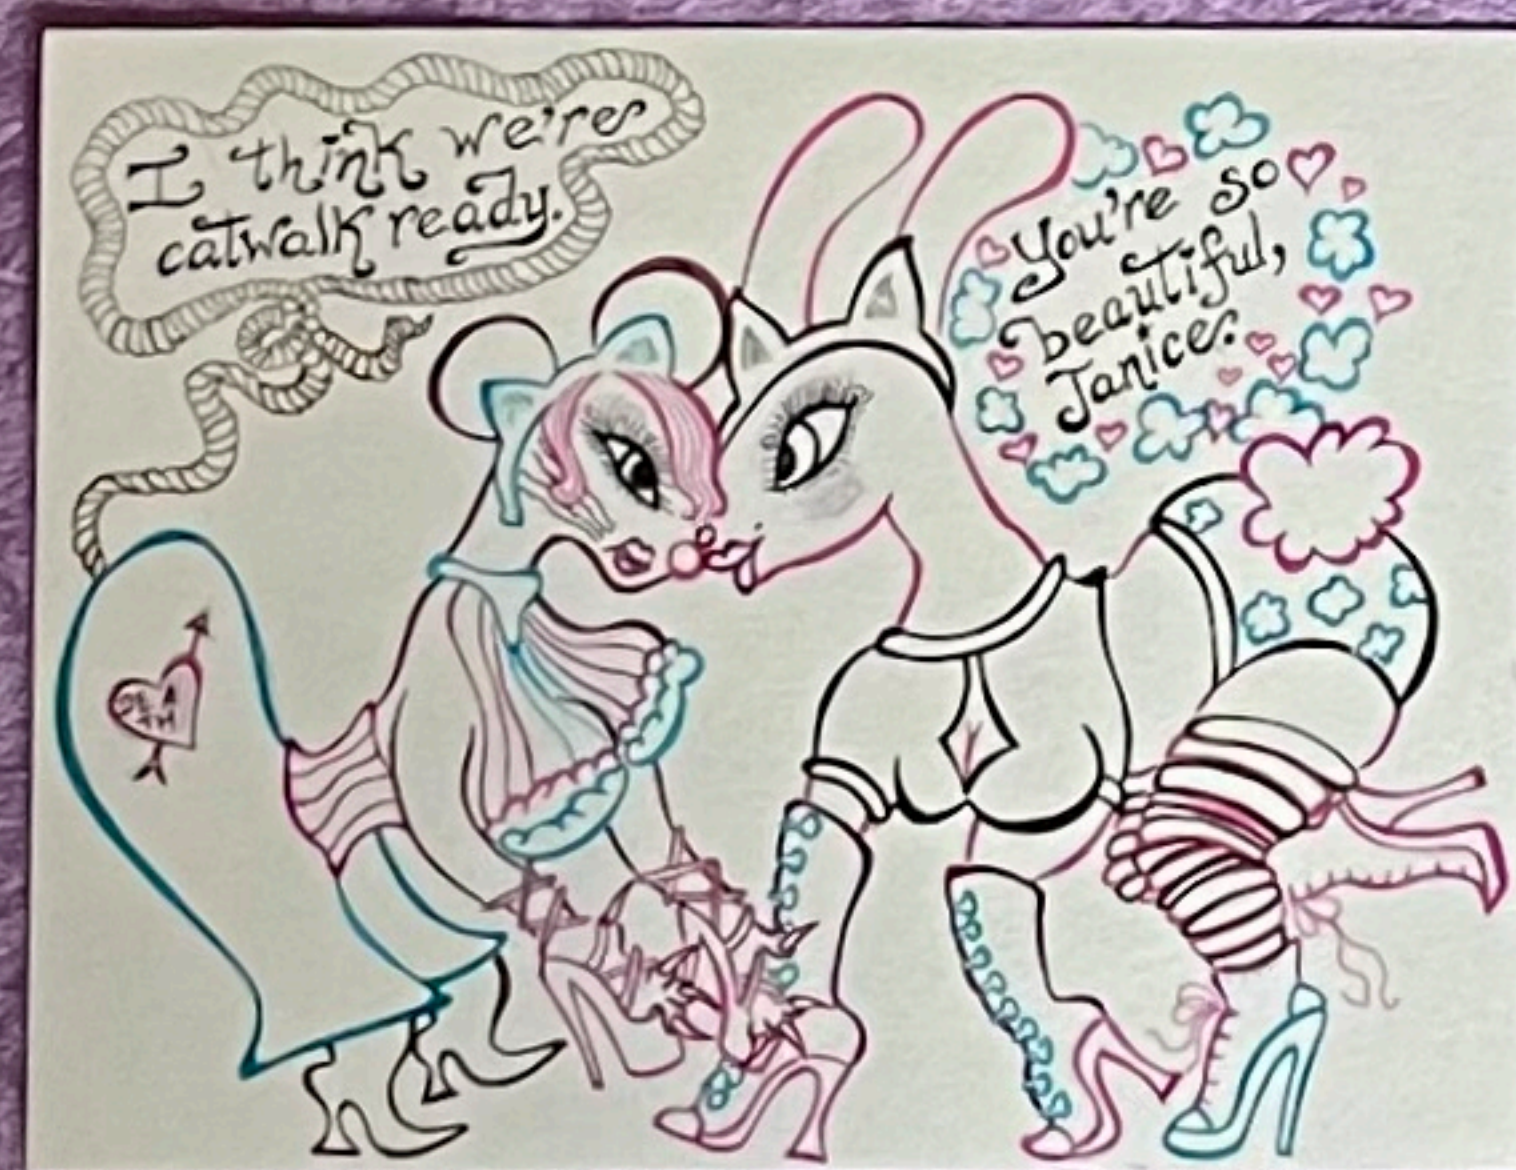 I think we're
catwalk ready.
You're so
beautiful,
Janice.
DEA
TH